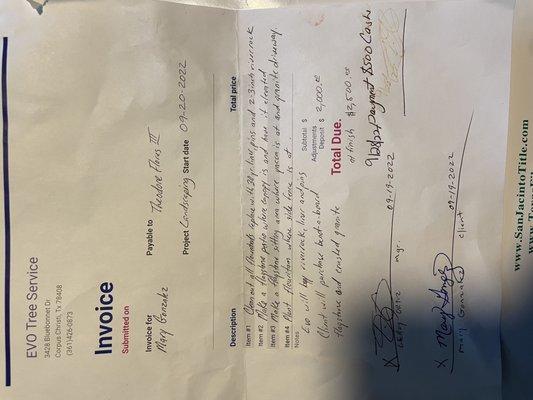 EVO Tree Service
3428 Bluebonnet Dr.
Corpus Christi, Tx 78408
(361)426-0873
Invoice
Submitted on
Invoice for
Mary Gonzalez
Payable to Theodore Flores III
Project Landscaping Start date 09-20-2022
Description Total price
Item #1 Clean out all flowerbeds replace with 20 yr. liner, pins and 2-3 inch riverrock
Item #2 Make a flagstone patio where canopy is and have it elevated
Item #3 Make a flagstone sitting area where pecan is at and granite driveway
Item #4 Plant where side fence is at.
Notes
Evo will buy riverrock, liner and pins
Client will purchase bend-a-board
flagstone and crushed granite
Subtotal $
Adjustments
Deposit $ 2,000.00
Total Due.
at finish $2,500.00
9/28/22 payment $500 Cash
X 09-19-2022
mgr.
X Mary 09-19-2022
Mary Gonzalez client
www.SanJacintoTitle.com